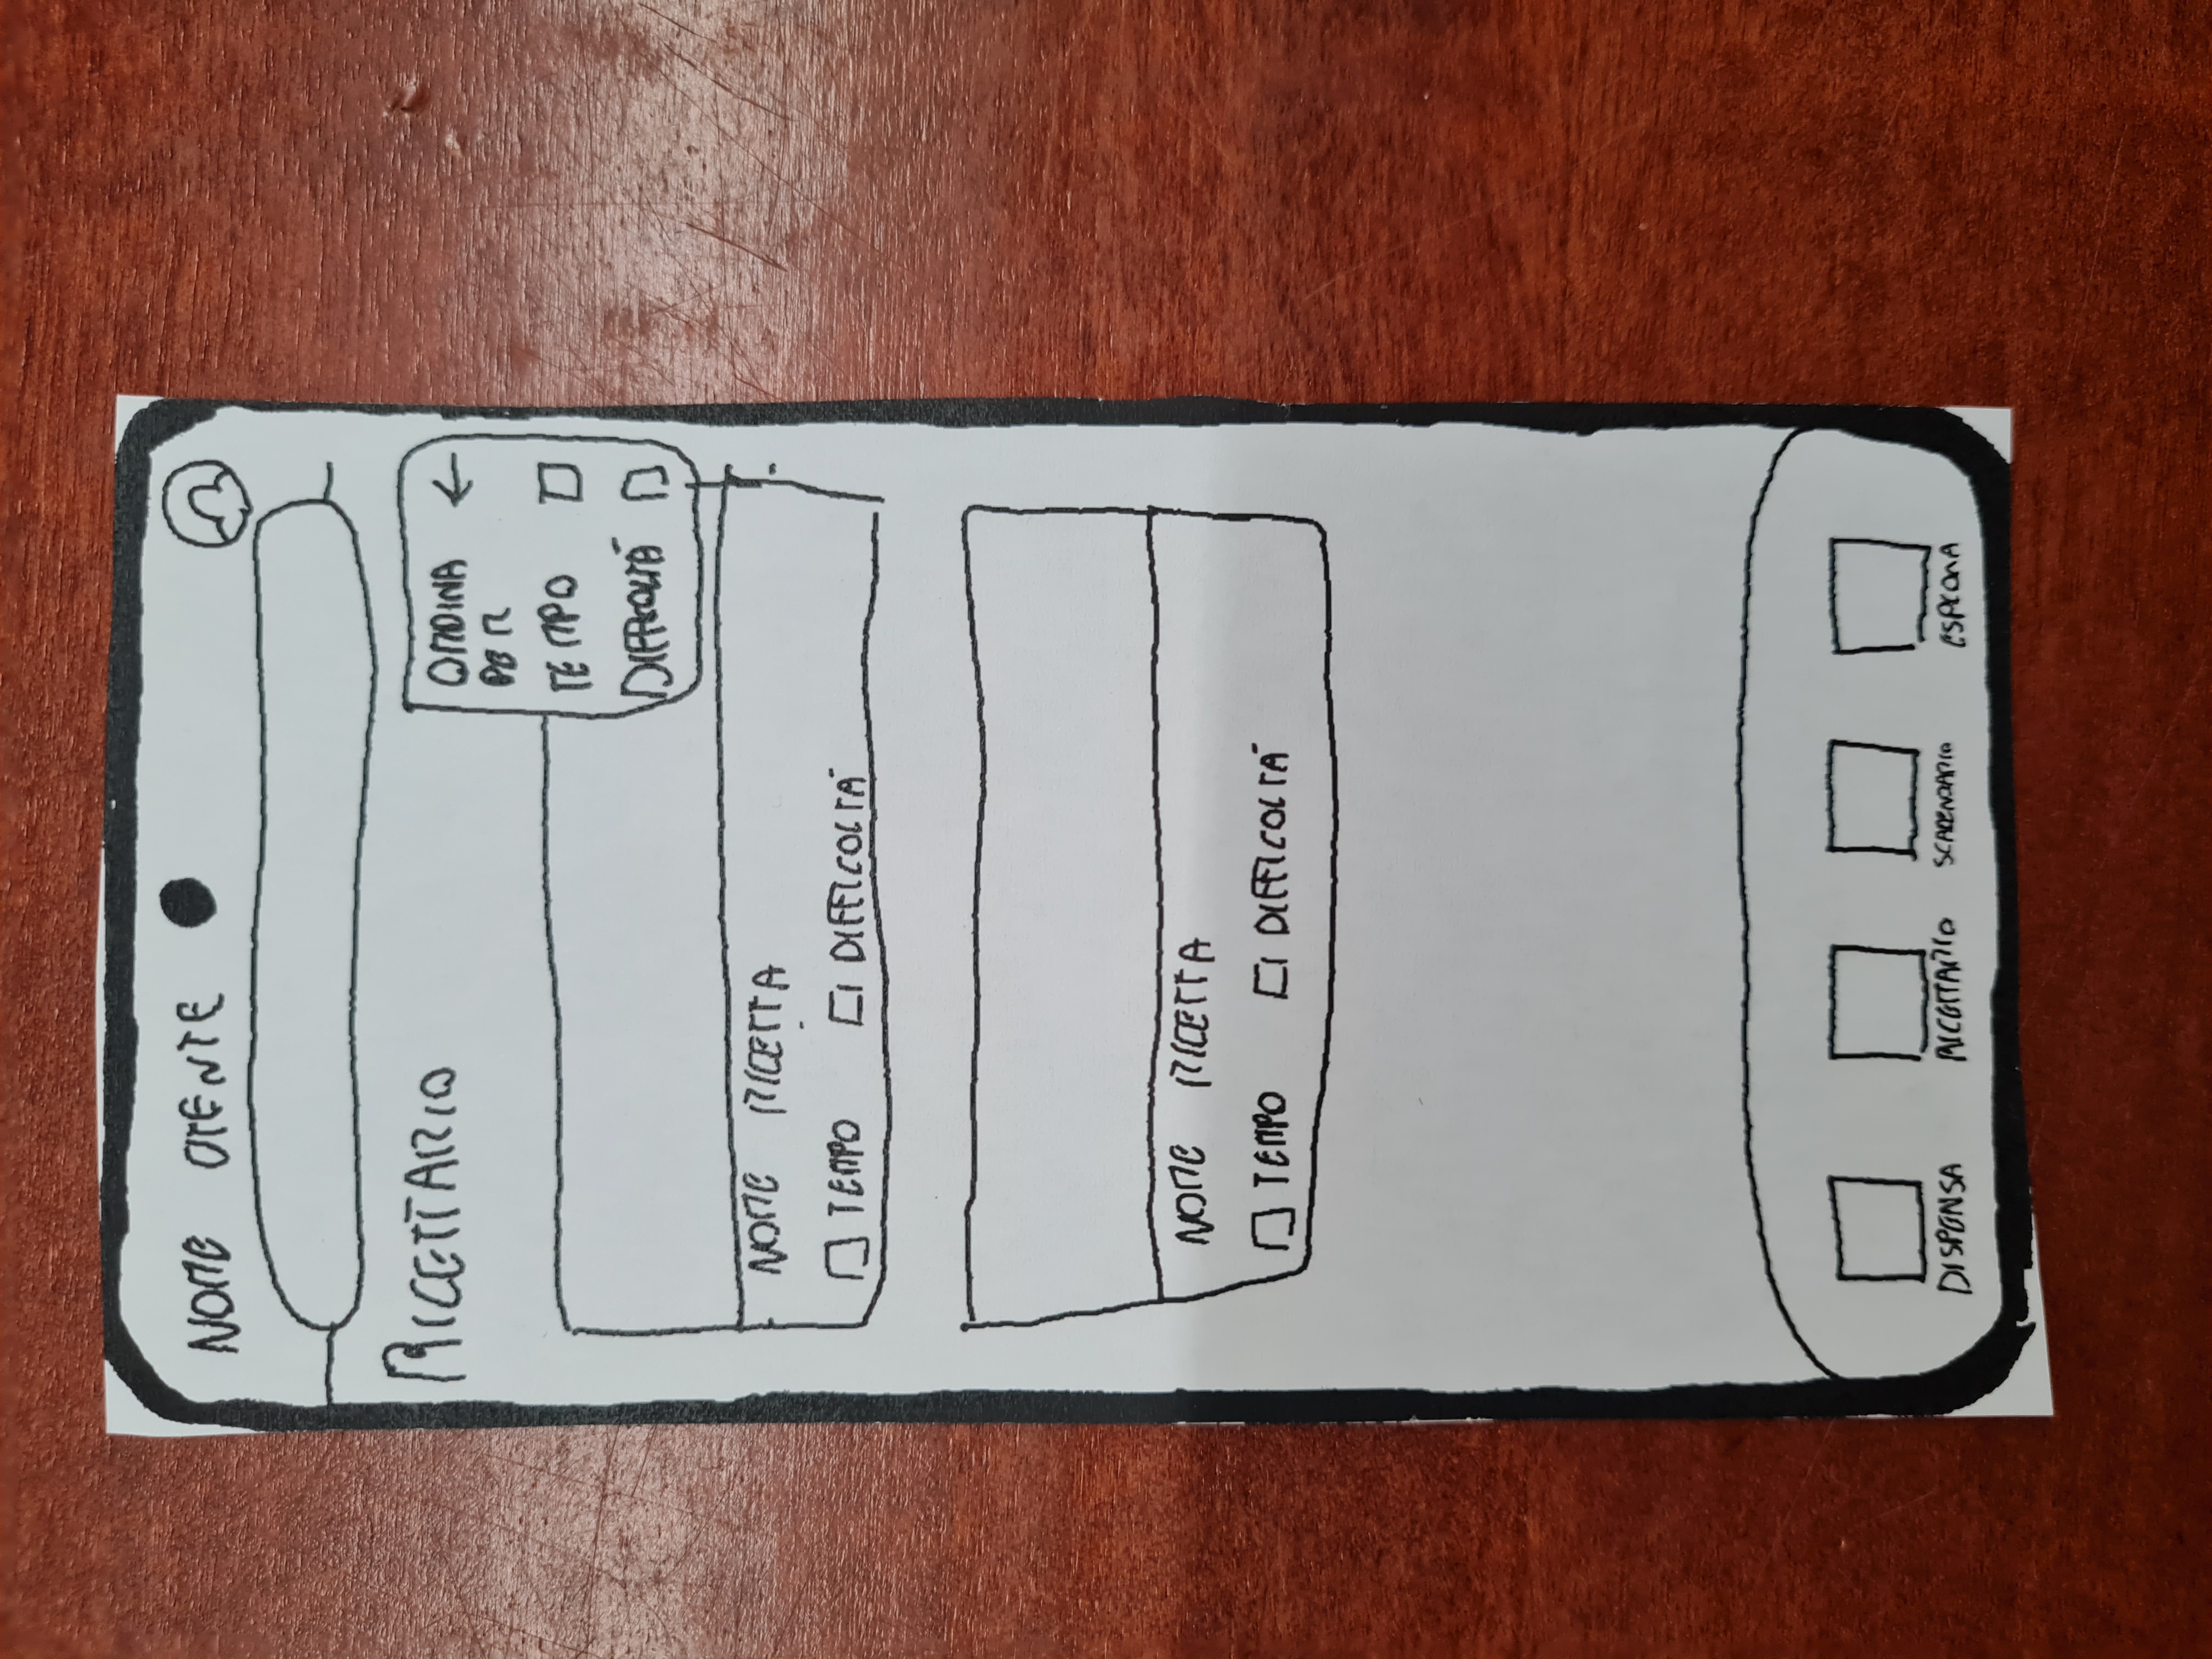 NOME UTENTE
RICETTARIO
ORDINA ←
PER
TEMPO
DIFFICOLTÀ
NOME RICETTA
TEMPO DIFFICOLTÀ
NOME RICETTA
TEMPO DIFFICOLTÀ
DISPENSA RICETTARIO SCADENZARIO ESPLORA